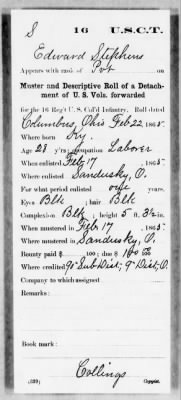 S 16 U.S.C.T.
Edward Stephens
Appears with rank of Pvt on
Muster and Descriptive Roll of a Detach-
ment of U. S. Vols. forwarded
for the 16 Reg't U. S. Col'd Infantry. Roll dated
Columbus, Ohio Feb 22, 1865.
Where born Ky.
Age 28 y'rs; occupation Laborer
When enlisted Feb 17, 1865.
Where enlisted Sandusky, O.
For what period enlisted one years.
Eyes Blk; hair Blk
Complexion Blk; height 5 ft. 3½ in.
When mustered in Feb 17, 1865.
Where mustered in Sandusky, O.
Bounty paid $ 100; due $ 100
Where credited 91" Sub Dist; 9" Dist, O.
Company to which assigned
Remarks:
Book mark:
Collings
(339) Copyist.